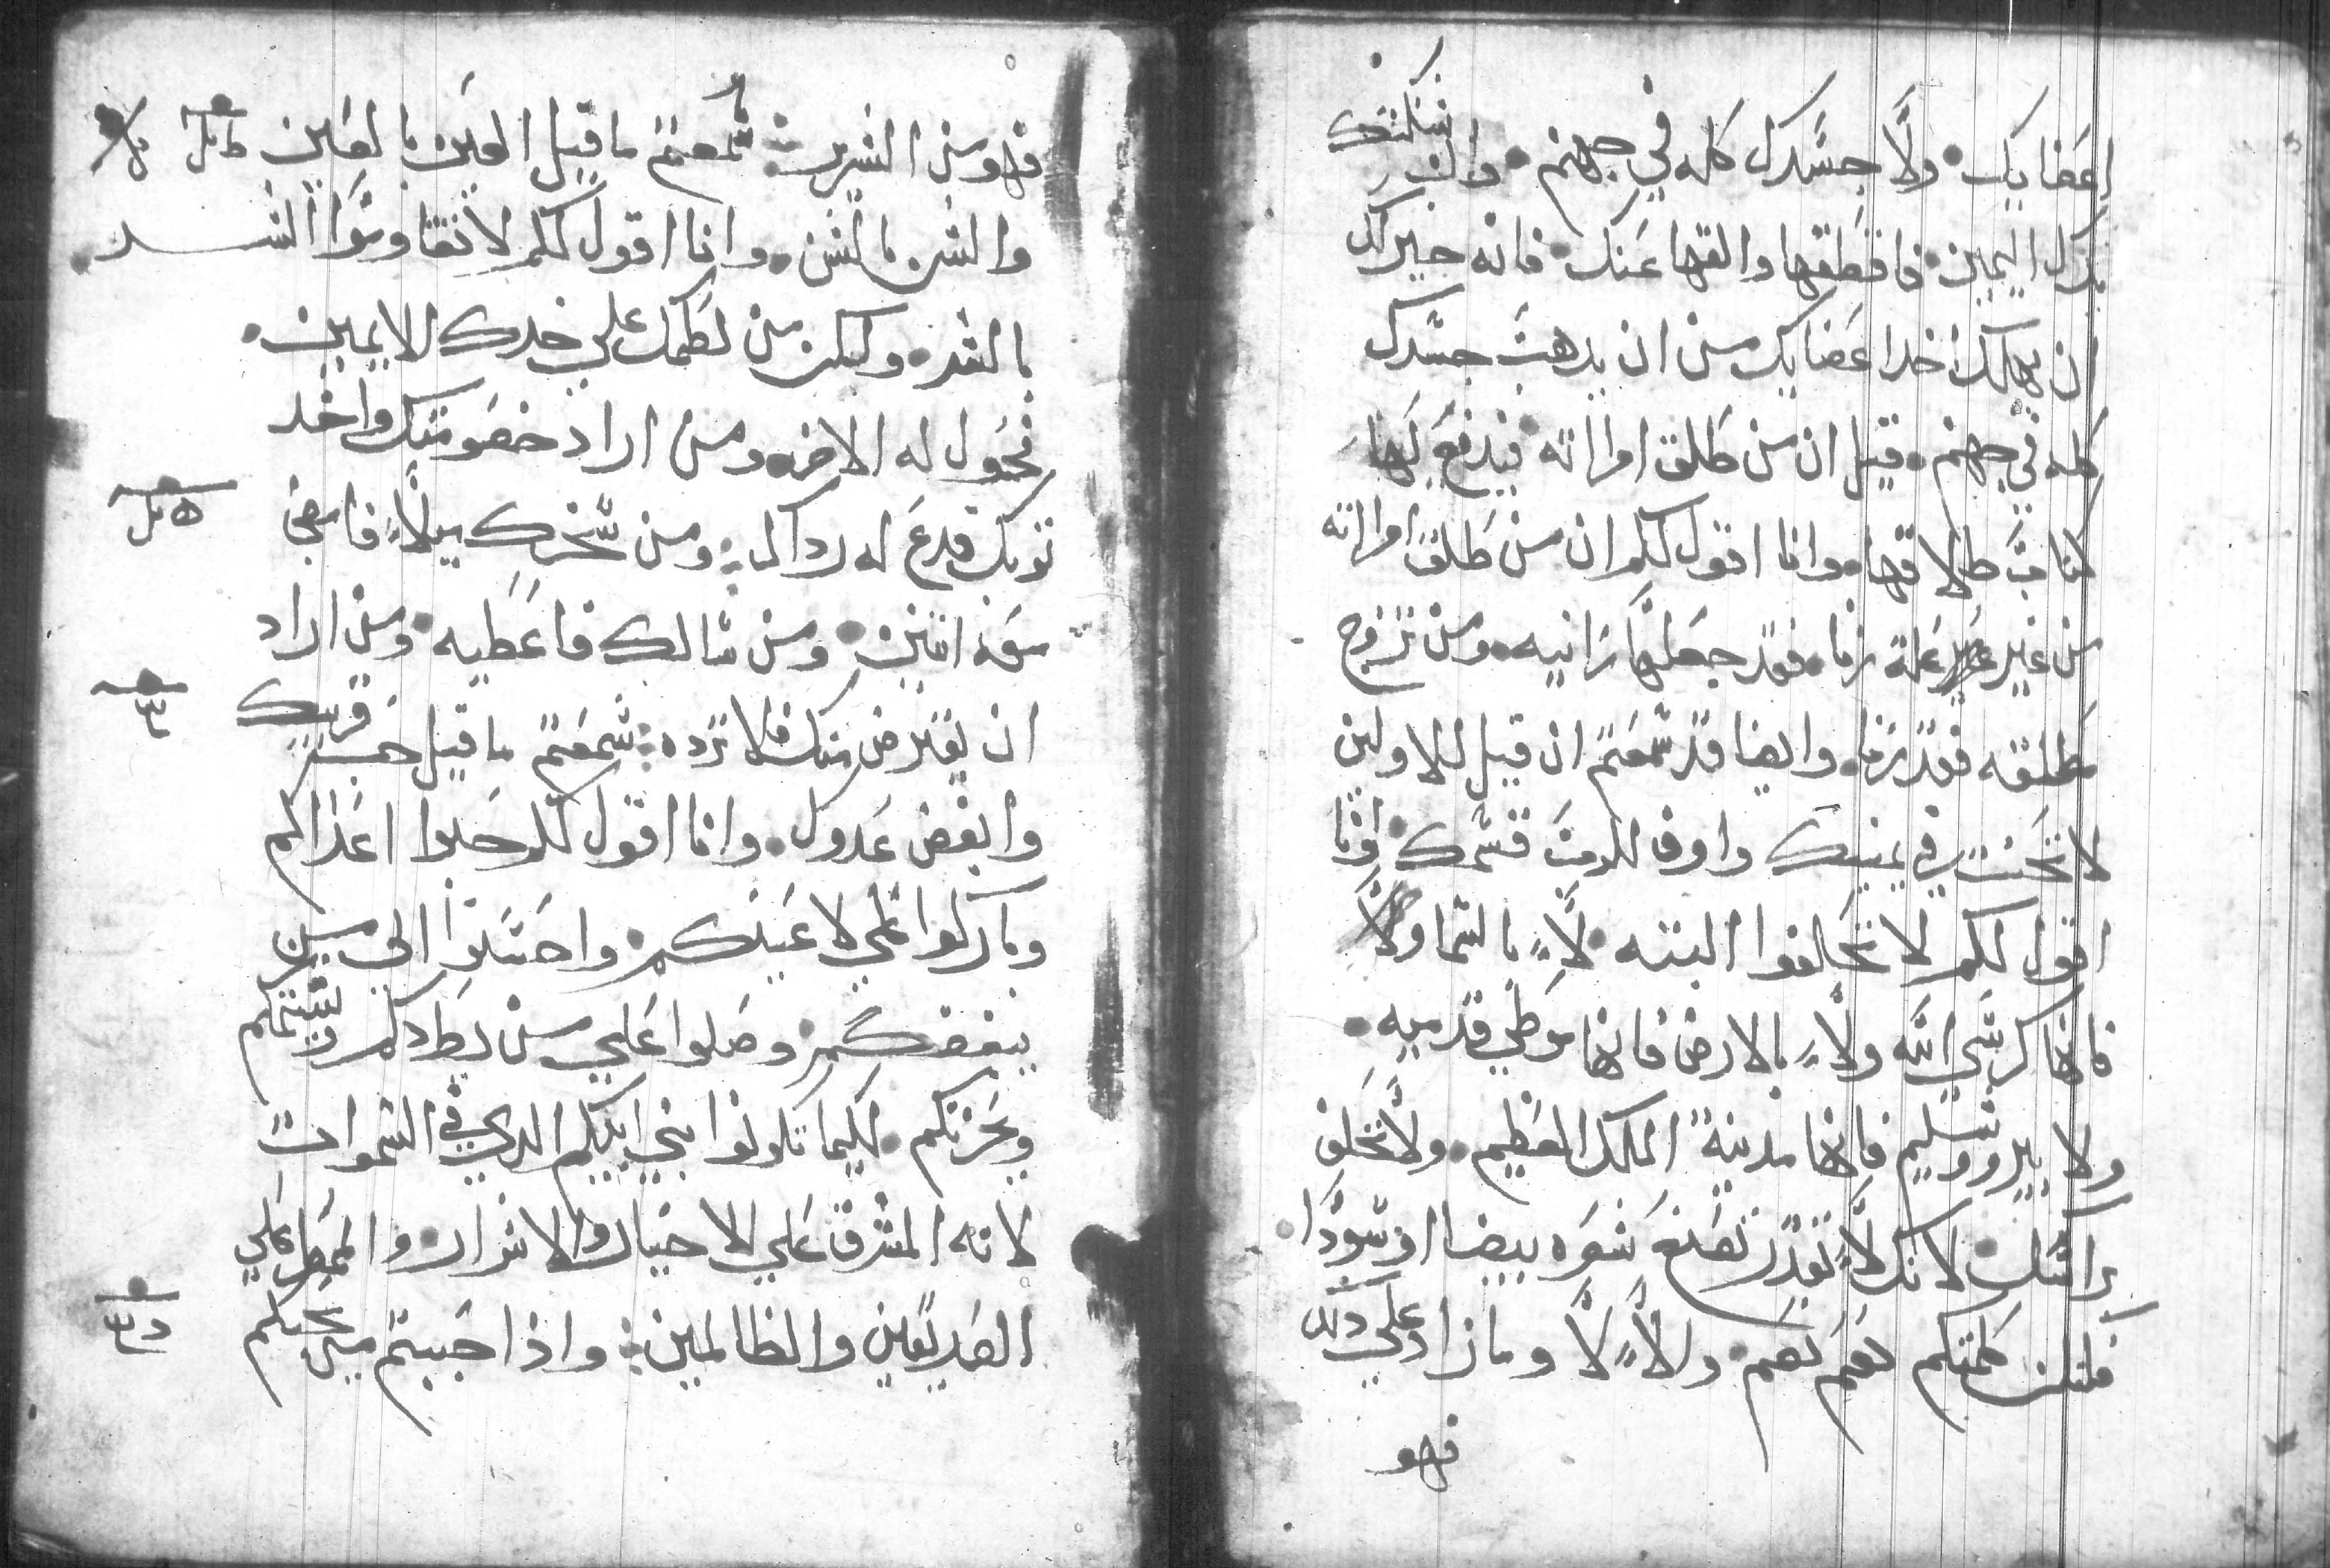 اعضايك ولا جسدك كله في جهنم وان شككتك
يدك اليمين فاقطعها والقها عنك فانه خير لك
ان يهلك احد اعضايك من ان يدهب جسدك
كله في جهنم قيل ان من طلق امراته فيدفع لها
كتاب طلاقها وانا اقول لكم ان من طلق امراته
من غير علة زنا فقد جعلها زانيه ومن تزوج
مطلقه فقد زنا وايضا قد سمعتم ان قيل للاولين
لا تحنث في يمينك واوف للرب قسمك وانا
اقول لكم لا تحلفوا البتته لا بالسما
فانها كرسي الله ولا بالارض فانها موطي قدميه
ولا بيروشليم فانها مدينة الملك العظيم ولا تحلف
براسك لانك لا تقدر تصنع شعره بيضا او سودا
فلتكن كلمتكم نعم نعم ولا لا وما زاد علي دلك
فهو
فهو من الشرير سمعتم ما قيل العين بالعين
والسن بالسن وانا اقول لكم لا تقاوموا الشر
بالشر ولكن من لطمك علي خدك الايمين
فحول له الاخر ومن اراد خصومتك واخد
توبك فدع له رداك ومن سخرك ميلا فامضي
معه اتنين ومن سالك فاعطيه ومن اراد
ان يقترض منك فلا ترده سمعتم ما قيل حب قريبك
وابغض عدوك وانا اقول لكم حبوا اعداكم
وباركوا علي لاعنيكم واحسنوا الي من
يبغضكم وصلوا علي من يطردكم ويشتمكم
ويحزنكم لكيما تكونوا بني ابيكم الدي في السموات
لانه المشرق علي الاخيار والاشرار والممطر علي
الصديقين والظالمين واذا حببتم من يحبكم